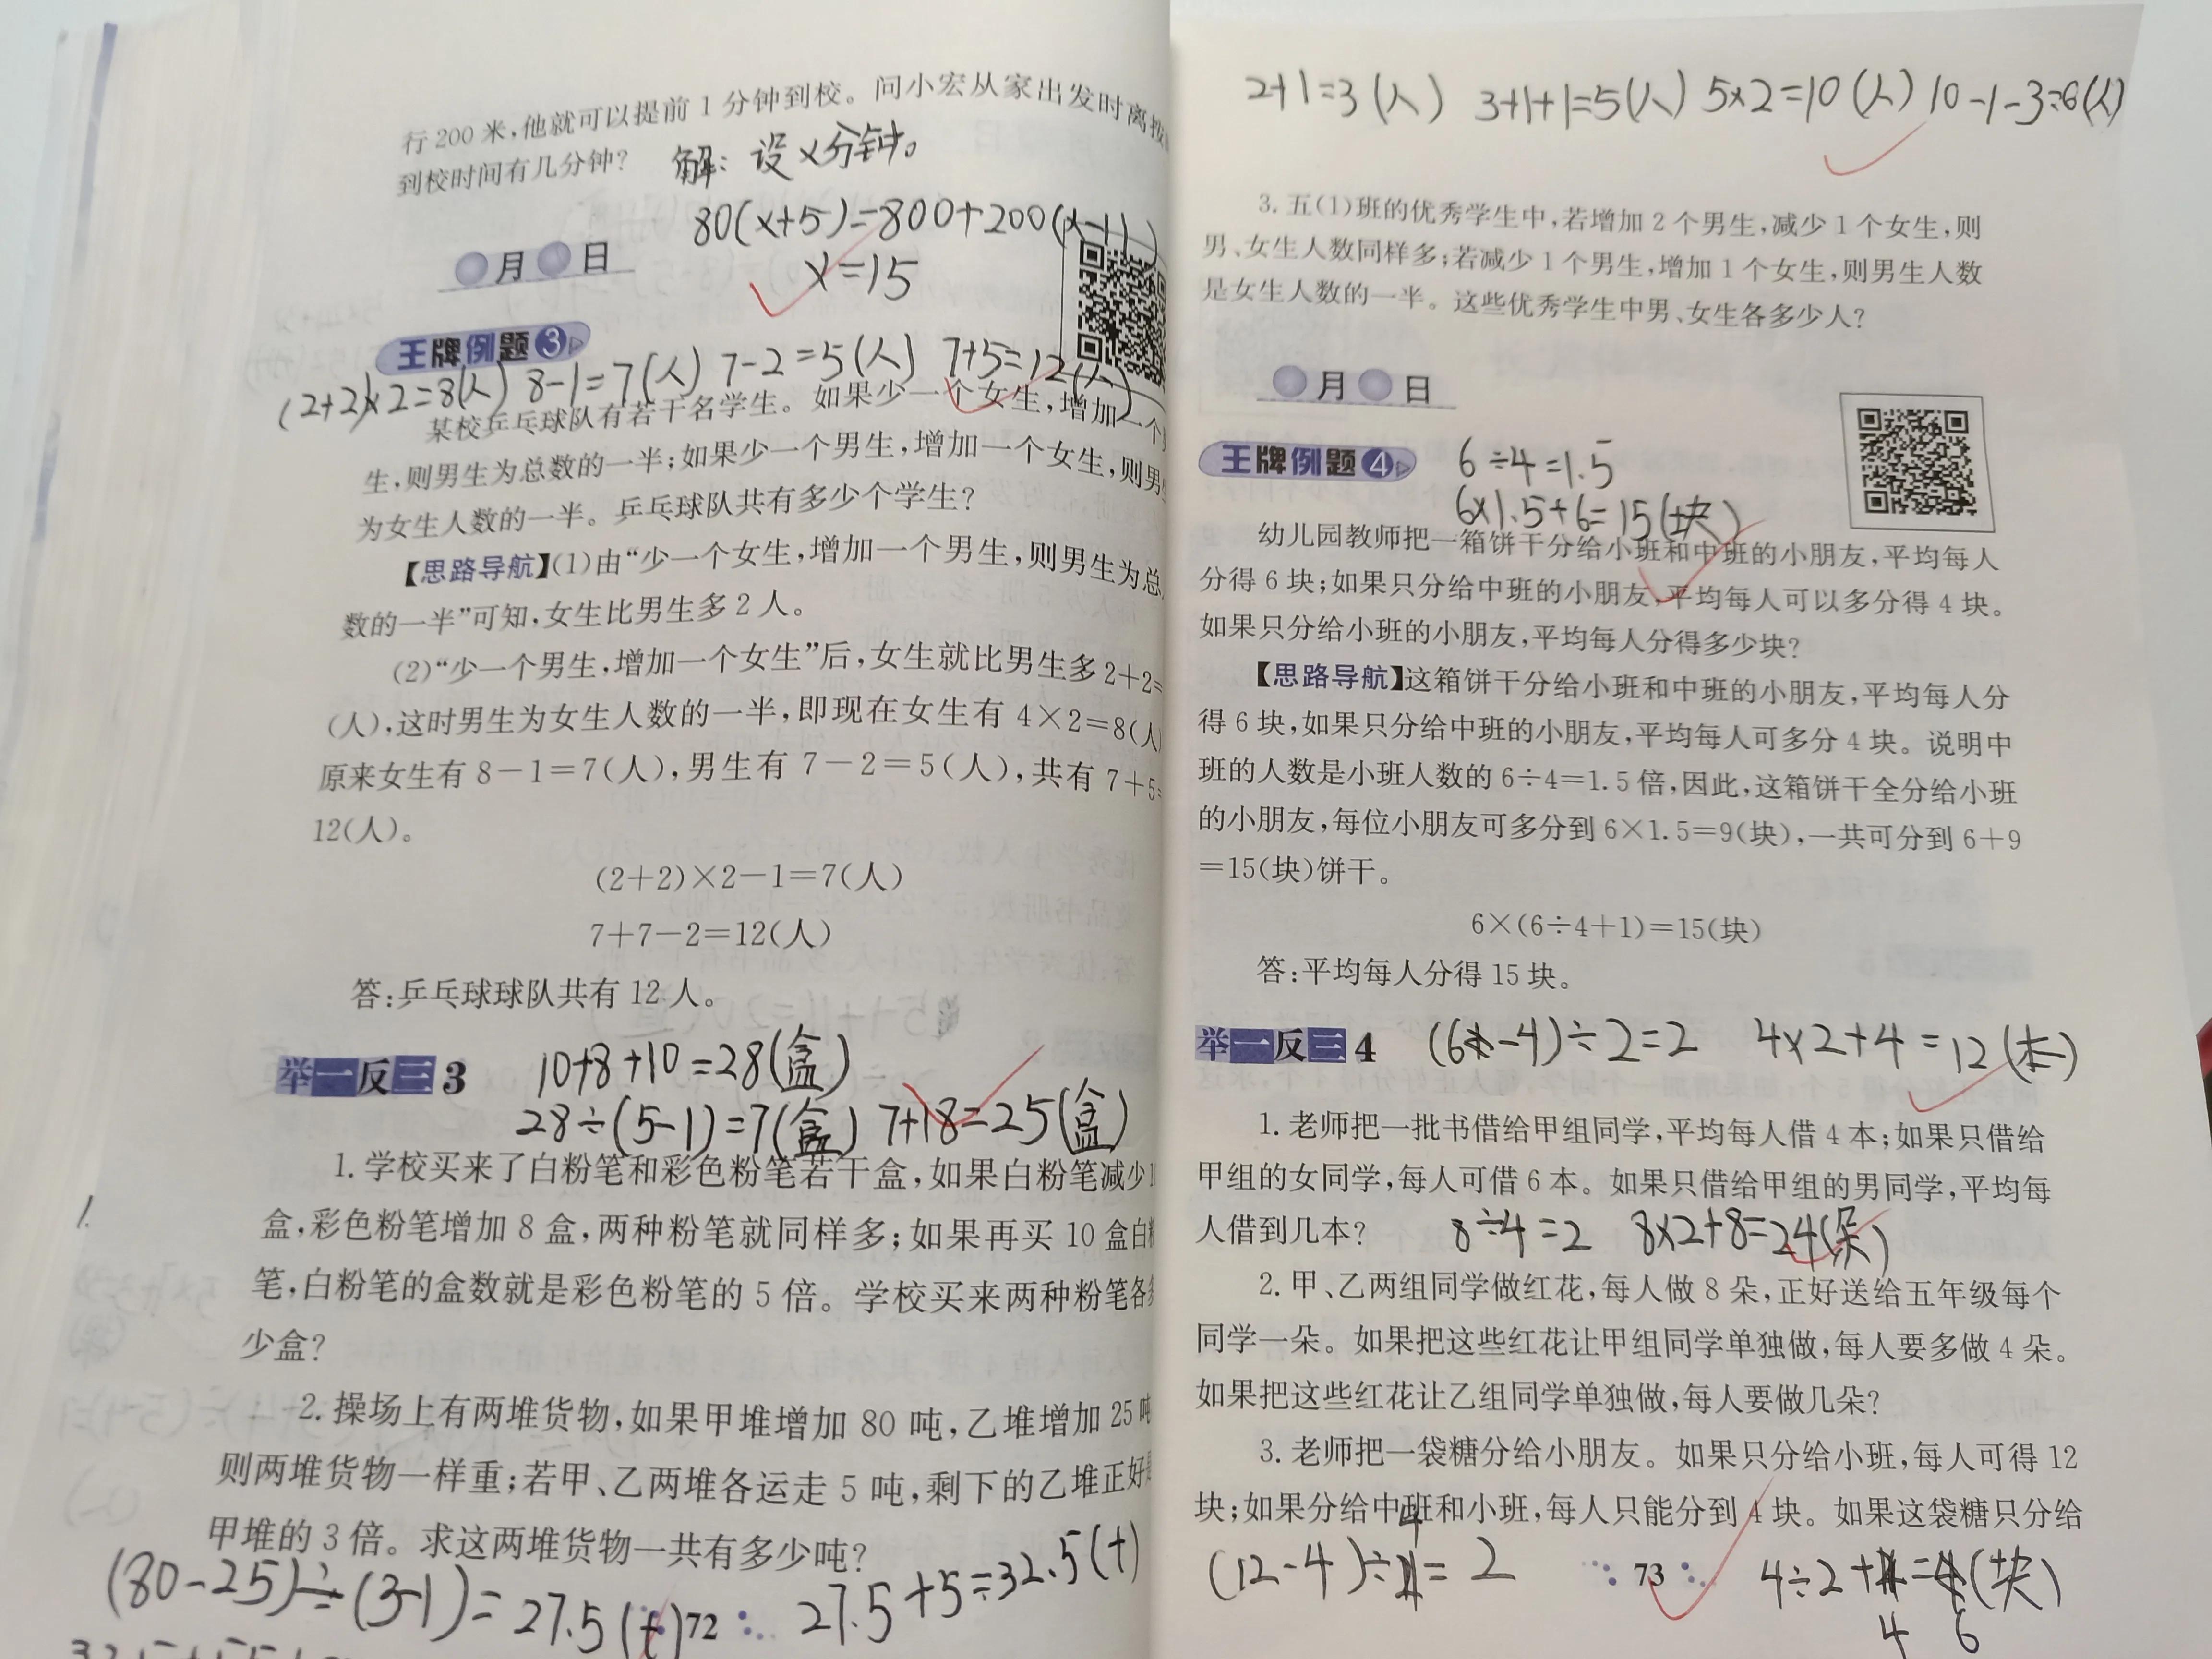 行200米,他就可以提前1分钟到校。问小宏从家出发时离
到校时间有几分钟? 解:设x分钟。
80(x+5)=800+200(x-1)
x=15
月 日
王牌例题3
(2+2)×2=8(人) 8-1=7(人) 7-2=5(人) 7+5=12(人)
某校乒乓球队有若干名学生。如果少一个女生,增加一个
生,则男生为总数的一半;如果少一个男生,增加一个女生,则男
为女生人数的一半。乒乓球队共有多少个学生?
【思路导航】(1)由“少一个女生,增加一个男生,则男生为总
数的一半”可知,女生比男生多2人。
(2)“少一个男生,增加一个女生”后,女生就比男生多2+2=
(人),这时男生为女生人数的一半,即现在女生有4×2=8(人
原来女生有8-1=7(人),男生有7-2=5(人),共有7+5=
12(人)。
(2+2)×2-1=7(人)
7+7-2=12(人)
答:乒乓球球队共有12人。
举一反三3
10+8+10=28(盒)
28÷(5-1)=7(盒) 7+18=25(盒)
1.学校买来了白粉笔和彩色粉笔若干盒,如果白粉笔减少
盒,彩色粉笔增加8盒,两种粉笔就同样多;如果再买10盒白
笔,白粉笔的盒数就是彩色粉笔的5倍。学校买来两种粉笔各
少盒?
2.操场上有两堆货物,如果甲堆增加80吨,乙堆增加25吨
则两堆货物一样重;若甲、乙两堆各运走5吨,剩下的乙堆正好
甲堆的3倍。求这两堆货物一共有多少吨?
(80-25)÷(3-1)=27.5(t) 27.5+5=32.5(t)
72
2+1=3(人) 3+1+1=5(人) 5×2=10(人) 10-1-3=6(人)
3.五(1)班的优秀学生中,若增加2个男生,减少1个女生,则
男、女生人数同样多;若减少1个男生,增加1个女生,则男生人数
是女生人数的一半。这些优秀学生中男、女生各多少人?
月 日
王牌例题4
6÷4=1.5
6×1.5+6=15(块)
幼儿园教师把一箱饼干分给小班和中班的小朋友,平均每人
分得6块;如果只分给中班的小朋友,平均每人可以多分得4块。
如果只分给小班的小朋友,平均每人分得多少块?
【思路导航】这箱饼干分给小班和中班的小朋友,平均每人分
得6块,如果只分给中班的小朋友,平均每人可多分4块。说明中
班的人数是小班人数的6÷4=1.5倍,因此,这箱饼干全分给小班
的小朋友,每位小朋友可多分到6×1.5=9(块),一共可分到6+9
=15(块)饼干。
6×(6÷4+1)=15(块)
答:平均每人分得15块。
举一反三4 (6-4)÷2=2 4×2+4=12(本)
1.老师把一批书借给甲组同学,平均每人借4本;如果只借给
甲组的女同学,每人可借6本。如果只借给甲组的男同学,平均每
人借到几本? 8÷4=2 8×2+8=24(朵)
2.甲、乙两组同学做红花,每人做8朵,正好送给五年级每个
同学一朵。如果把这些红花让甲组同学单独做,每人要多做4朵。
如果把这些红花让乙组同学单独做,每人要做几朵?
3.老师把一袋糖分给小朋友。如果只分给小班,每人可得12
块;如果分给中班和小班,每人只能分到4块。如果这袋糖只分给
(12-4)÷4=2 73 4÷2+4=6(块)